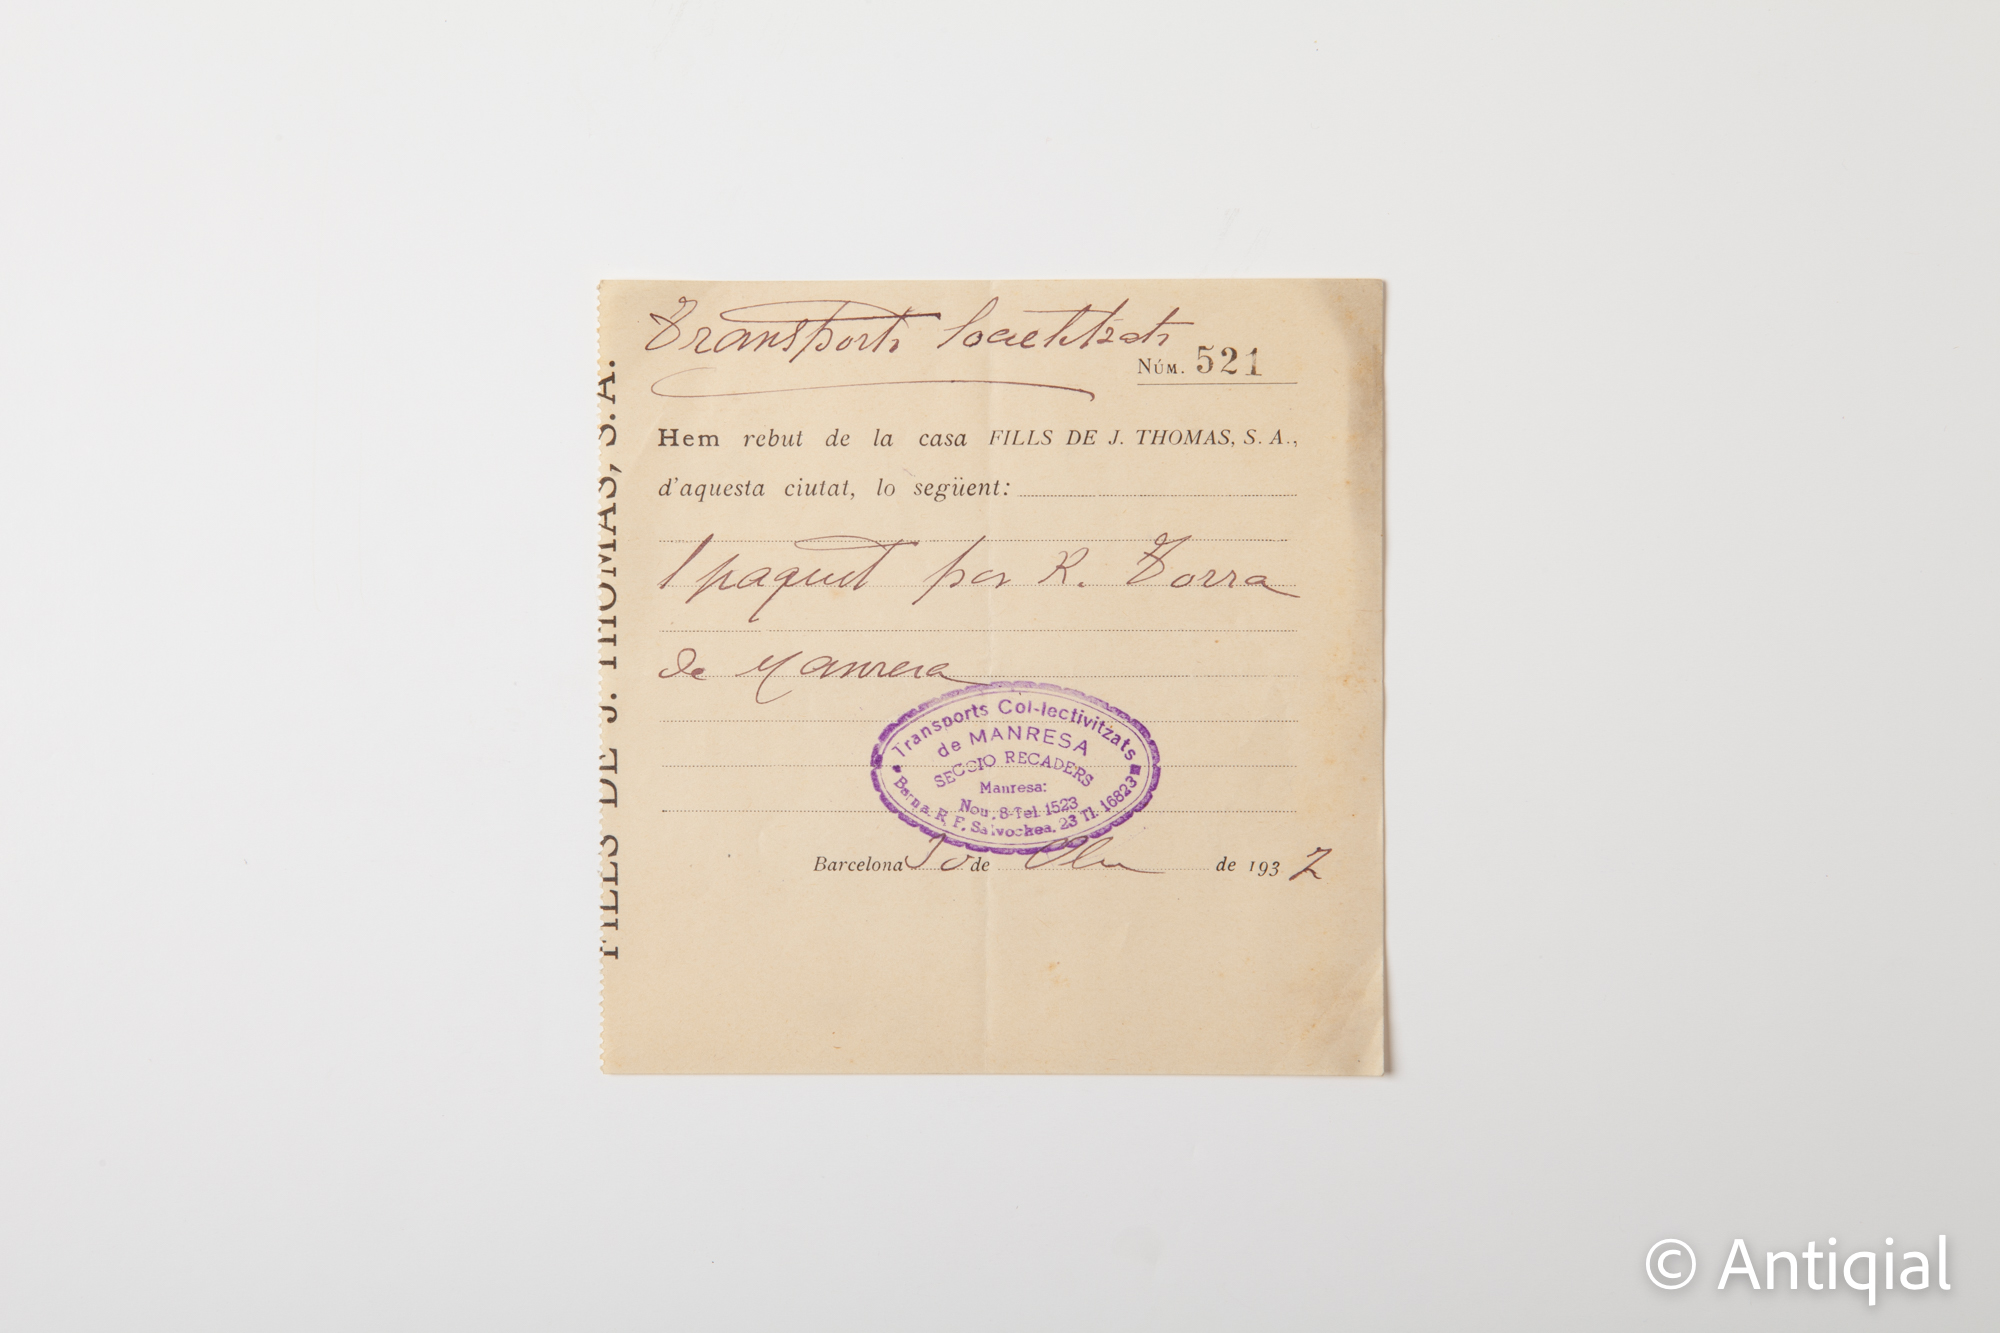 Transports
NÚM. 521
Hem rebut de la casa FILLS DE J. THOMAS, S. A.,
d'aquesta ciutat, lo següent:
1 paquet per R. Torra
de Manresa
Transports Col-lectivitzats
de MANRESA
SECCIO RECADERS
Manresa:
Nou, 8-Tel. 1523
Barna. R. F. Salvochea, 23 Tl. 16823
Barcelona de de 1937
FILLS DE J. THOMAS, S. A.
© Antiqial